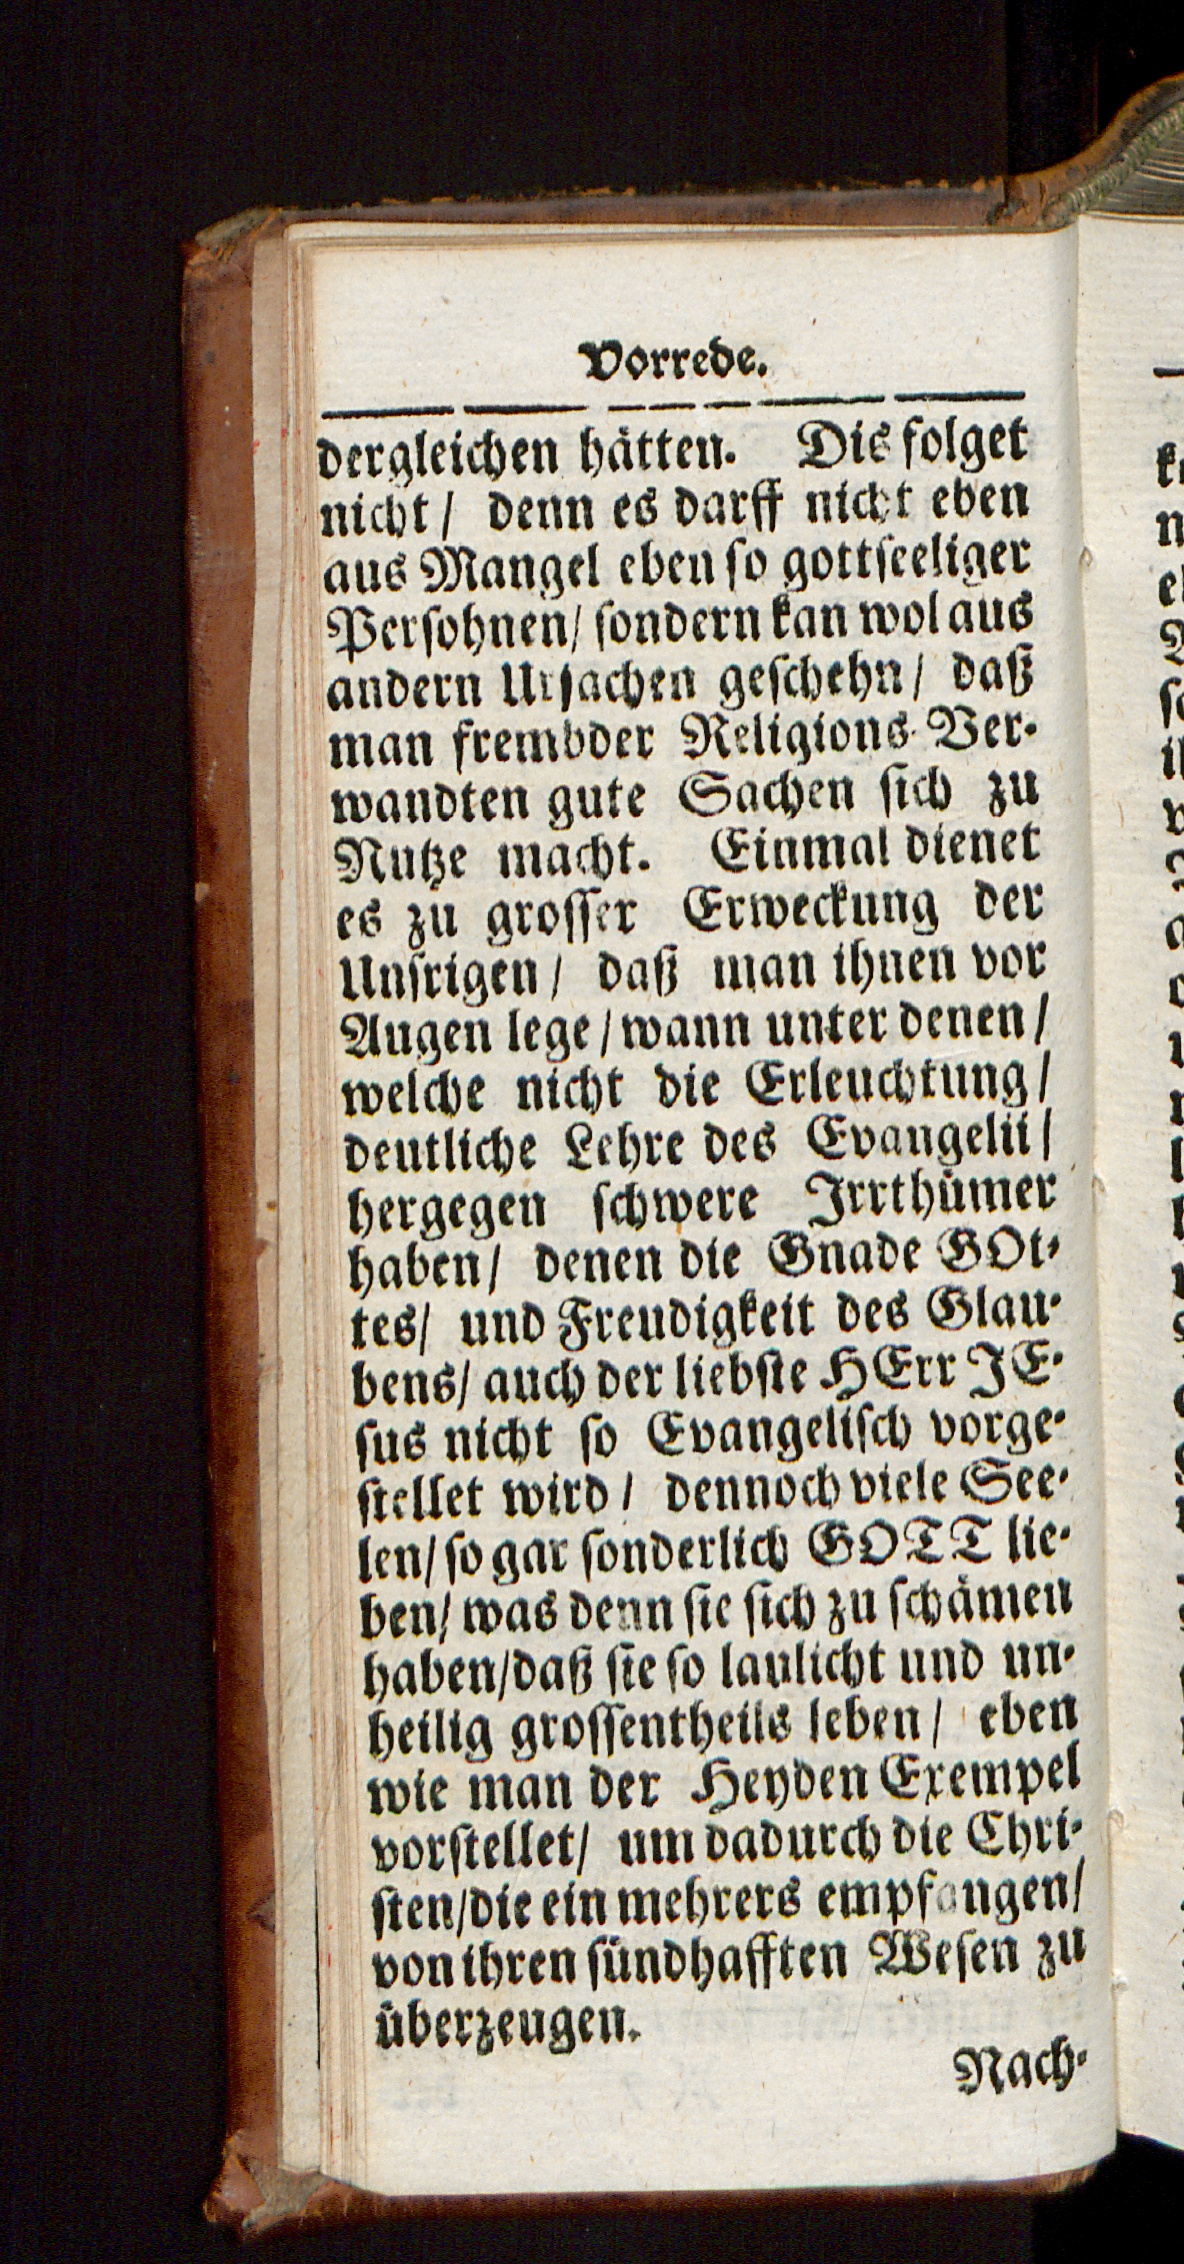 Vorrede.
dergleichen hätten. Dis folget
nicht / denn es darff nicht eben
aus Mangel eben so gottseeliger
Persohnen / sondern kan wol aus
andern Ursachen geschehn / daß
man frembder Religions-Ver-
wandten gute Sachen sich zu
Nutze macht. Einmal dienet
es zu grosser Erweckung der
Unsrigen / daß man ihnen vor
Augen lege / wann unter denen /
welche nicht die Erleuchtung /
deutliche Lehre des Evangelii /
hergegen schwere Irrthümer
haben / denen die Gnade GOt-
tes / und Freudigkeit des Glau-
bens / auch der liebste HErr JE-
sus nicht so Evangelisch vorge-
stellet wird / dennoch viele See-
len / so gar sonderlich GOTT lie-
ben / was denn sie sich zu schämen
haben / daß sie so laulicht und un-
heilig grossentheils leben / eben
wie man der Heyden Exempel
vorstellet / um dadurch die Chri-
sten / die ein mehrers empfangen /
von ihren sündhafften Wesen zu
überzeugen.
Nach-